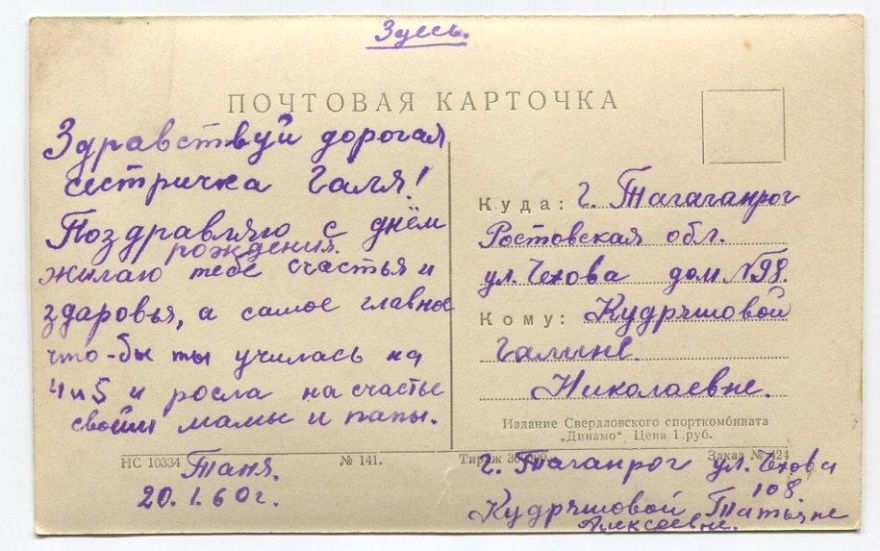 Здесь.
ПОЧТОВАЯ КАРТОЧКА
Здравствуй дорогая
сестричка Галя!
Поздравляю с днём
рождения.
жилаю тебе счастья и
здаровья, а самое главное
что-бы ты училась на
4 и 5 и росла на счастье
своим мамы и папы.
Таня.
20.1.60г.
Куда: г. Тагаганрог
Ростовская обл.
ул. Чехова дом №98.
Кому: Кудряшовой
Галине
Николаевне.
Издание Свердловского спорткомбината
„Динамо“ Цена 1 руб.
НС 10334 № 141. Тираж Заказ №
г. Таганрог ул. Чехова
108.
Кудряшовой Татьяне
Алексеевне.